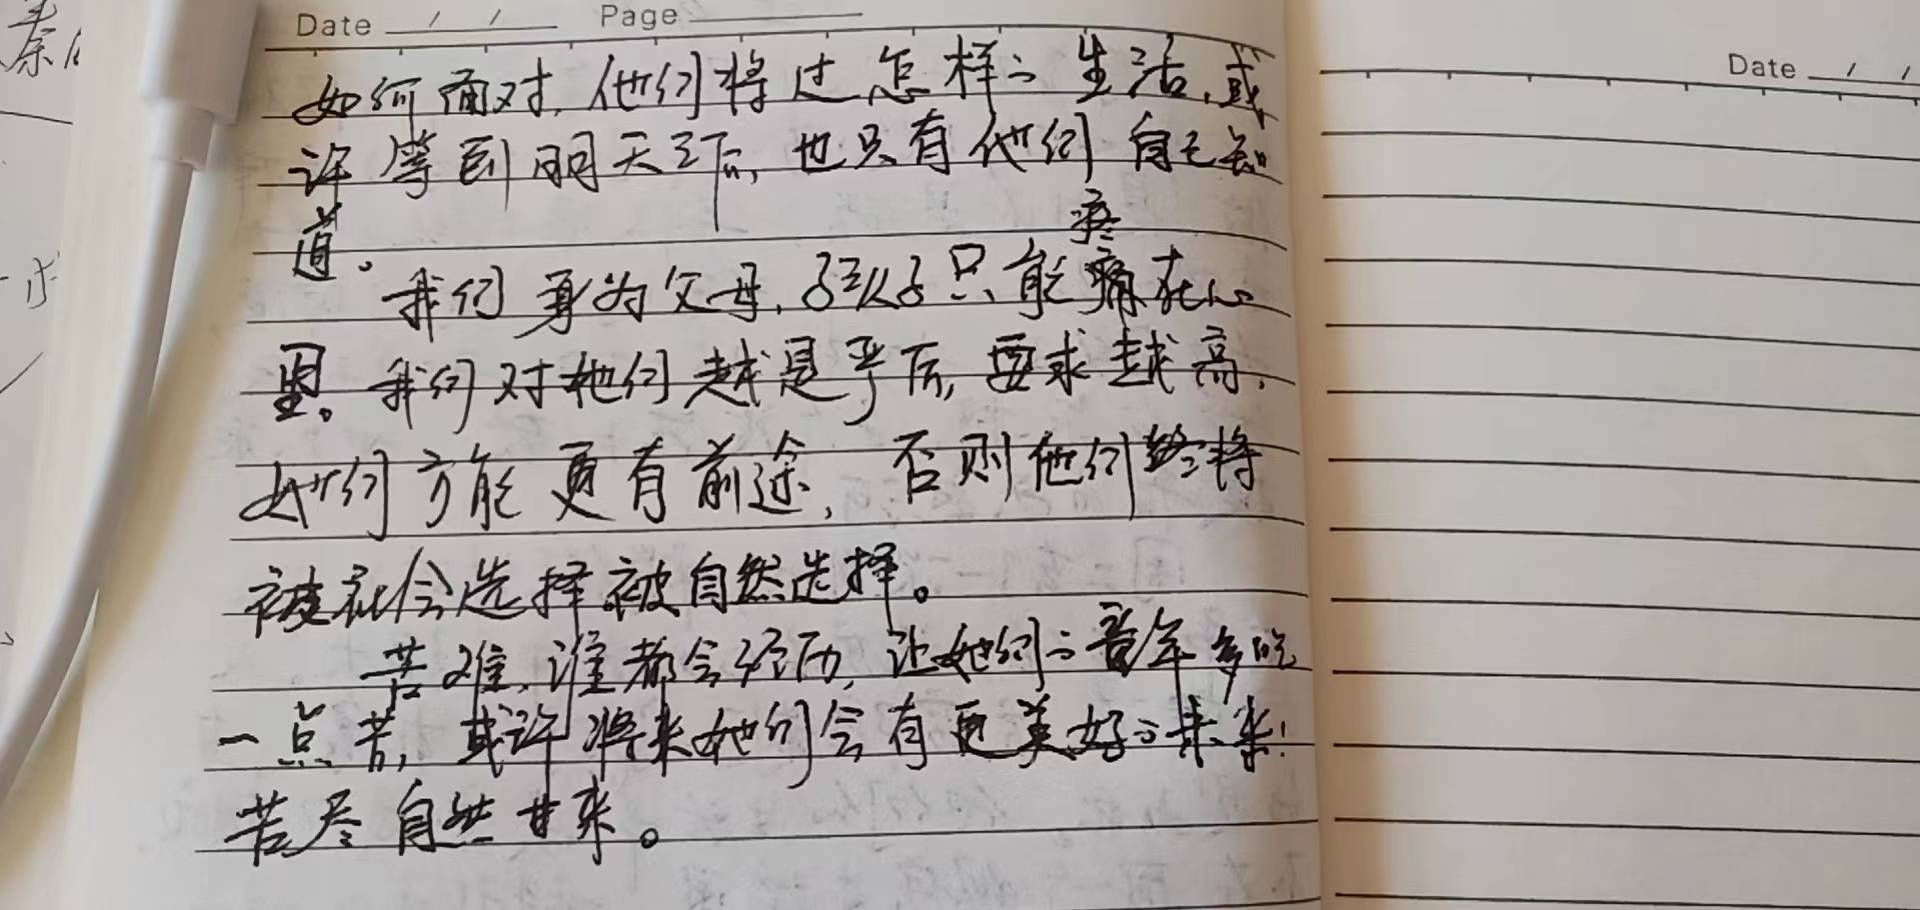 Date / / Page
如何面对,他们将过怎样的生活,或
许等到明天之后,也只有他们自己知
道。
疼
我们身为父母,好似只能痛在心
里。我们对她们越是严厉,要求越高,
她们方能更有前途,否则他们终将
被社会选择被自然选择。
苦难,谁都会经历,让她们的童年多吃
一点苦,或许将来她们会有更美好的未来!
苦尽自然甘来。
Date / /